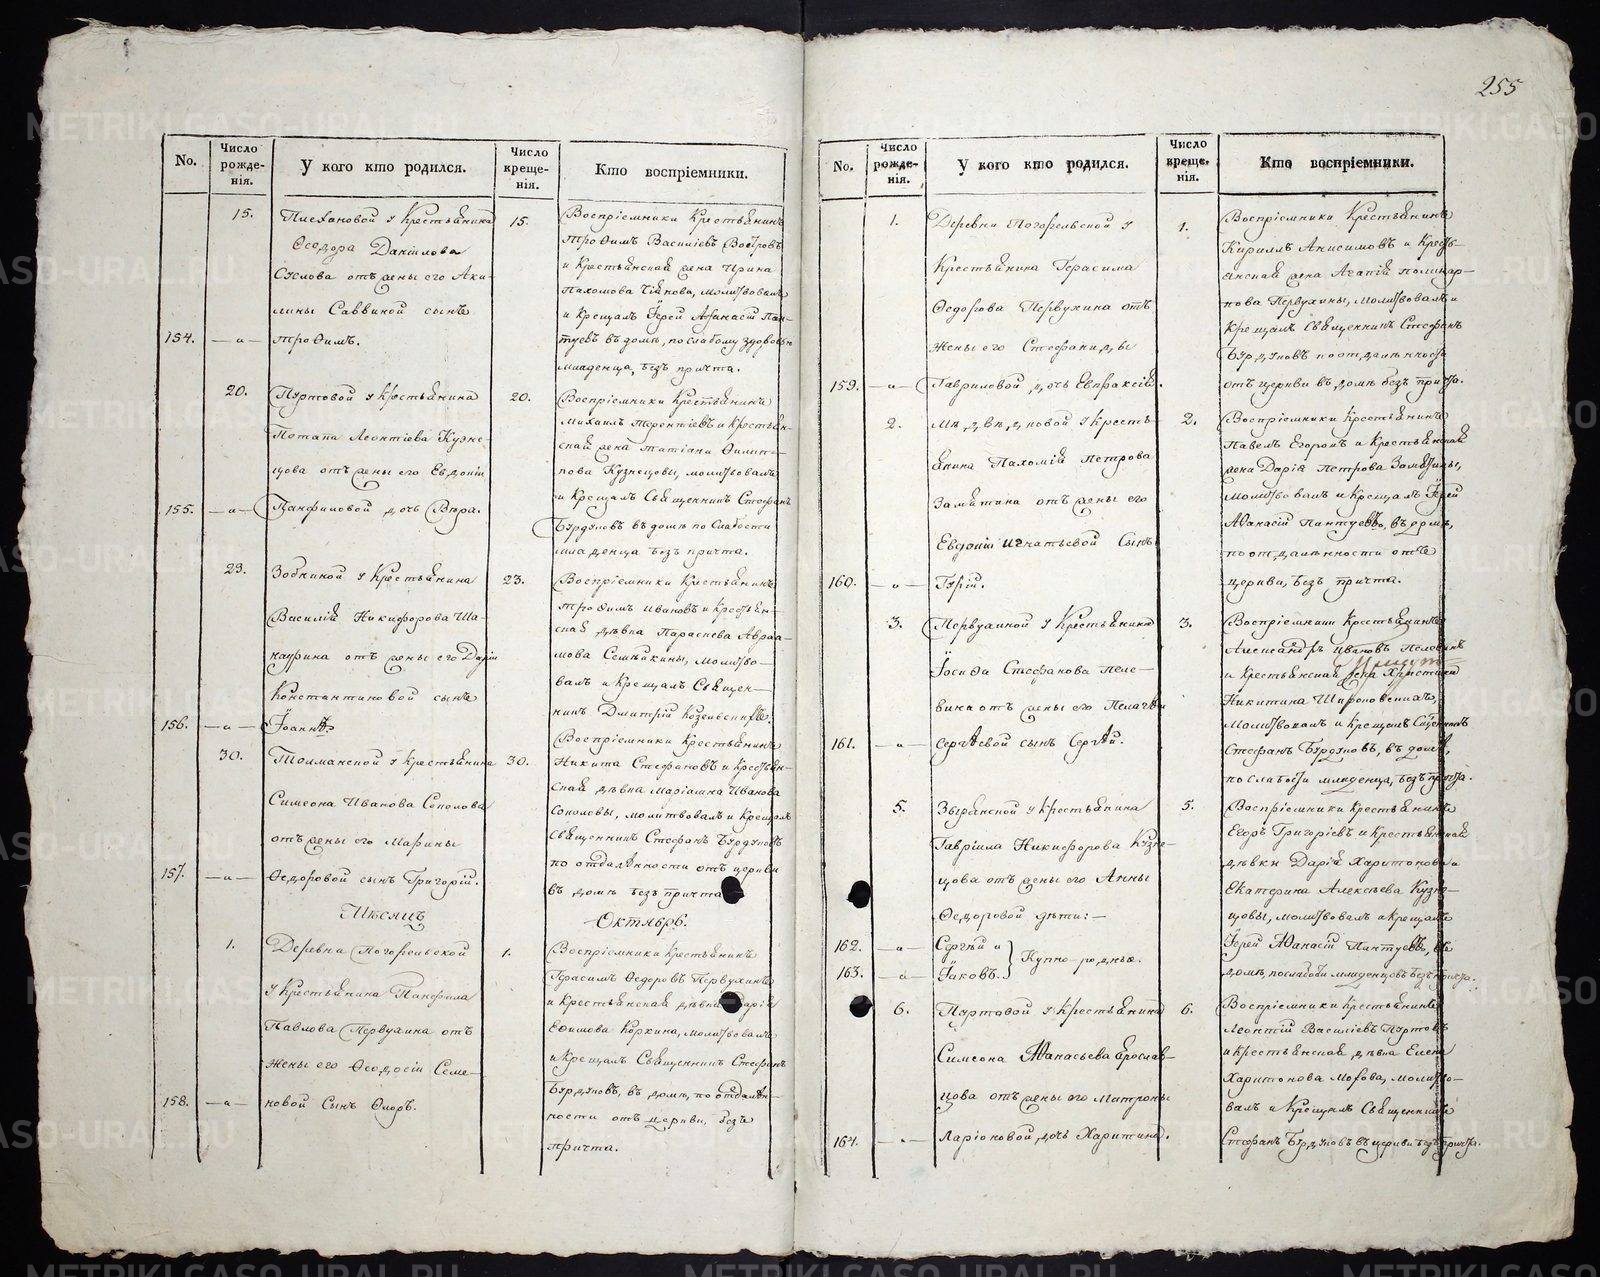 255
No.
Число рожде- нія.
У кого кто родился.
Число креще- нія.
Кто воспріемники.
15.
Плехановой у Крестьянина
Ѳеодора Данилова
Суслова отъ жены его Аки-
лины Саввиной сынъ
154. —„— Трофимъ.
15.
Воспріемники Крестьянинъ
Трофимъ Василіевъ
и Крестьянская жена Ирина
Пахомова, молитвовалъ
и Крещалъ Іерей Афанасій Пан-
туевъ въ домѣ, по слабому здоровью
младенца, безъ причта.
20.
Пуртовой у Крестьянина
Потапа Леонтіева Кузне-
цова отъ жены его Евдокіи
155. —„— Панфиловой дочь Вѣра.
20.
Воспріемники Крестьянинъ
Михаилъ Терентіевъ и Крестьян-
ская жена Татіана Филип-
пова Кузнецовы, молитвовалъ
и Крещалъ Священникъ Стефанъ
Бурдуковъ въ домѣ по слабости
младенца безъ причта.
23.
Зобниной у Крестьянина
Василія Никифорова Ша-
отъ жены его Даріи
Константиновой сынъ
156. —„— Іоаннъ.
23.
Воспріемники Крестьянинъ
Трофимъ Ивановъ и Крестьян-
ская дѣвка Параскева Авраа-
мова Семѣкины, молитво-
валъ и Крещалъ Священ-
никъ Димитрій
30.
Толманской у Крестьянина
Симеона Иванова Соколова
отъ жены его Марины
157. —„— Ѳедоровой сынъ Григорій.
30.
Воспріемники Крестьянинъ
Никита Стефановъ и Крестьян-
ская дѣвка Маріамна Иванова
Соколовы, молитвовалъ и Крещалъ
Священникъ Стефанъ Бурдуковъ
по отдалѣнности отъ церкви
въ домѣ безъ причта
Мѣсяцъ Октябрь.
1.
Деревни Погорельской
у Крестьянина Панфила
Павлова Первухина отъ
жены его Ѳеодосіи Семе-
158. —„— новой Сынъ
1.
Воспріемники Крестьянинъ
Герасимъ Ѳедоровъ Первухинъ
и Крестьянская дѣвка Дарія
Ефимова Коркина, молитвовалъ
и Крещалъ Священникъ Стефанъ
Бурдуковъ, въ домѣ, по отдалѣн-
ности отъ церкви, безъ
причта.
No.
Число рожде- нія.
У кого кто родился.
Число креще- нія.
Кто воспріемники.
1.
Деревни Погорельской у
Крестьянина Герасима
Ѳедорова Первухина отъ
жены его Стефаниды
159. —„— Гавриловой дочь Евпраксія.
1.
Воспріемники Крестьянинъ
Кириллъ Анисимовъ и Кресть-
янская жена Агапія Поликар-
пова Первухины, молитвовалъ и
Крещалъ Священникъ Стефанъ
Бурдуковъ по отдаленности
отъ церкви въ домѣ безъ причта.
2.
Мѣдвѣдковой у Кресть-
янина Пахомія Петрова
Замятина отъ жены его
Евдокіи Игнатьевой Сынъ
160. —„— Гурій.
2.
Воспріемники Крестьянинъ
Павелъ Егоровъ и Крестьянская
жена Дарія Петрова Замятины,
молитвовалъ и Крещалъ Іерей
Афанасій Пантуевъ, въ домѣ,
по отдаленности отъ
церкви, безъ причта.
3.
Первухиной у Крестьянина
Іосифа Стефанова Пеле-
вина отъ жены его Пелагѣи
161. —„— Сергѣевой сынъ Сергѣй.
3.
Воспріемники Крестьянинъ
Александръ Ивановъ Пелевинъ
и Крестьянская жена Христина
Никитина,
молитвовалъ и Крещалъ Священникъ
Стефанъ Бурдуковъ, въ домѣ,
по слабости младенца, безъ причта.
5.
Зырянской у Крестьянина
Гавріила Никифорова Кузне-
цова отъ жены его Анны
Ѳедоровой дѣти: —
162. —„— Сергѣй и
163. —„— Іаковъ. } Купно-родные.
5.
Воспріемники Крестьянинъ
Егоръ Григоріевъ и Крестьянской
дѣвки Дарія Харитонова и
Екатерина Алексѣева Кузне-
цовы, молитвовалъ и Крещалъ
Іерей Афанасій Пантуевъ, въ
домѣ, по слабости младенцевъ безъ причта.
6.
Пуртовой у Крестьянина
Симеона Афанасьева Ярослав-
цова отъ жены его Матроны
164. —„— Ларіоновой дочь Харитина.
6.
Воспріемники Крестьянинъ
Леонтій Василіевъ Пуртовъ
и Крестьянская дѣвка Елена
Харитонова Мохова, молитво-
валъ и Крещалъ Священникъ
Стефанъ Бурдуковъ въ церкви безъ причта.
METRIKI.GASO-URAL.RU